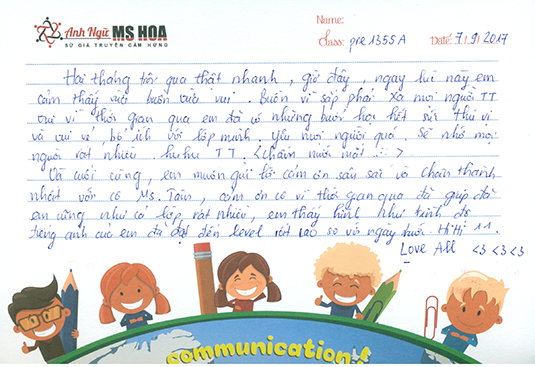 Anh Ngữ MS HOA
SỨ GIẢ TRUYỀN CẢM HỨNG
Name:
Class: pre 1355A Date: 7/9/2017
Hai tháng trôi qua thật nhanh, giờ đây, ngay lúc này em
cảm thấy vừa buồn vừa vui. Buồn vì sắp phải xa mọi người TT
vui vì thời gian qua em đã có những buổi học hết sức thú vị
và vui vẻ, bổ ích với lớp mình. Yêu mọi người quá. Sẽ nhớ mọi
người rất nhiều. huhu TT. <chấm nước mắt ...>
Và cuối cùng, em muốn gửi lời cảm ơn sâu sắc và chân thành
nhất với cô Ms. Tâm, cảm ơn cô vì thời gian qua đã giúp đỡ
em cũng như cả lớp rất nhiều, em thấy hình như trình độ
tiếng anh của em đã đạt đến level rất cao so với ngày trước. Hihi 11.
Love All <3 <3 <3
communication!